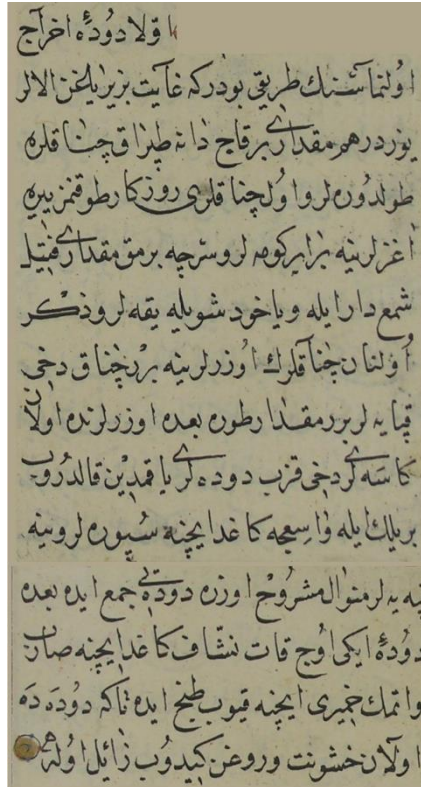 اوّلا دودهٔ اخراج
اولنماسنك طريقى بودركه غايت بزير ياغن الالر
يوز درهم مقدارى برقاج دانه طپراق چناقلره
طولدوره لر و اول چناقلرى روزكار طوقنمز يره
اغزلرينه برابر كومه لر و سرچه برمق مقدارى فتيل
شمع دار ايله و ياخود شويله يقه لر و ذكر
اولنان چناقلرك اوزرلرينه برر چناق دخى
قپايه لر برر مقدار طوره بعده اوزرلرنده اولان
كاسه لر دخى قزب دوده لرى ياقمدين قالدروب
بر يلك ايله واسعجه كاغد ايچنه سپوره لر و ينه
ينه يه لر منوال مشروح اوزره دوده يى جمع ايده بعده
دودهٔ ايكى اوج قات نشّاف كاغد ايچنه صاروب
و اتمك خميرى ايچنه قيوب طبخ ايده تاكه دوده ده
اولان خشونت و روغن كيدوب زائل اوله